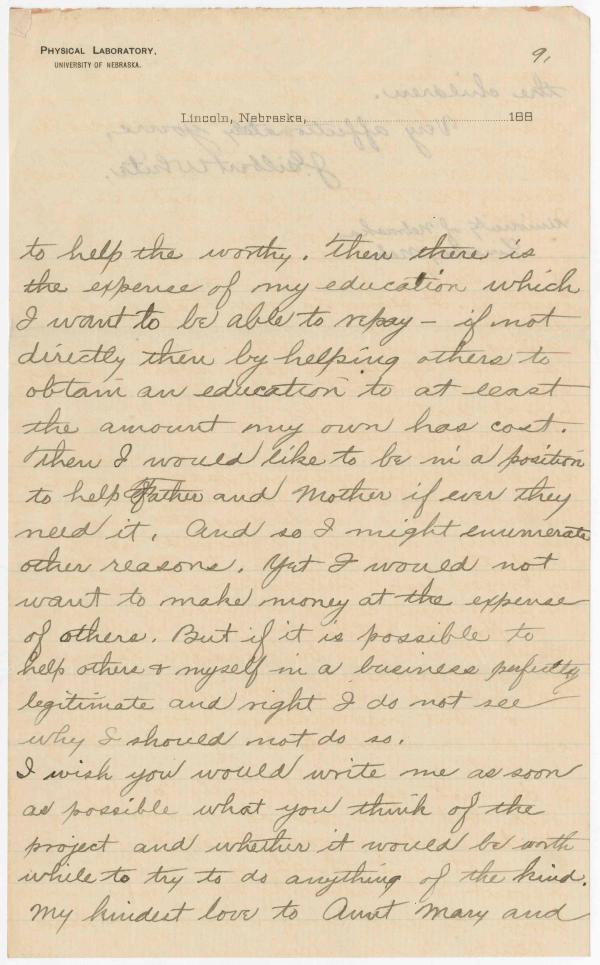 PHYSICAL LABORATORY,
UNIVERSITY OF NEBRASKA.
9.
Lincoln, Nebraska, 188
to help the worthy. Then there is
the expense of my education which
I want to be able to repay – if not
directly then by helping others to
obtain an education to at least
the amount my own has cost.
Then I would like to be in a position
to help Father and Mother if ever they
need it. And so I might enumerate
other reasons. Yet I would not
want to make money at the expense
of others. But if it is possible to
help others & myself in a business perfectly
legitimate and right I do not see
why I should not do so.
I wish you would write me as soon
as possible what you think of the
project and whether it would be worth
while to try to do anything of the kind.
My kindest love to Aunt Mary and
the children.
Very affectionately yours,
J. Gilbert White.
University of Nebraska